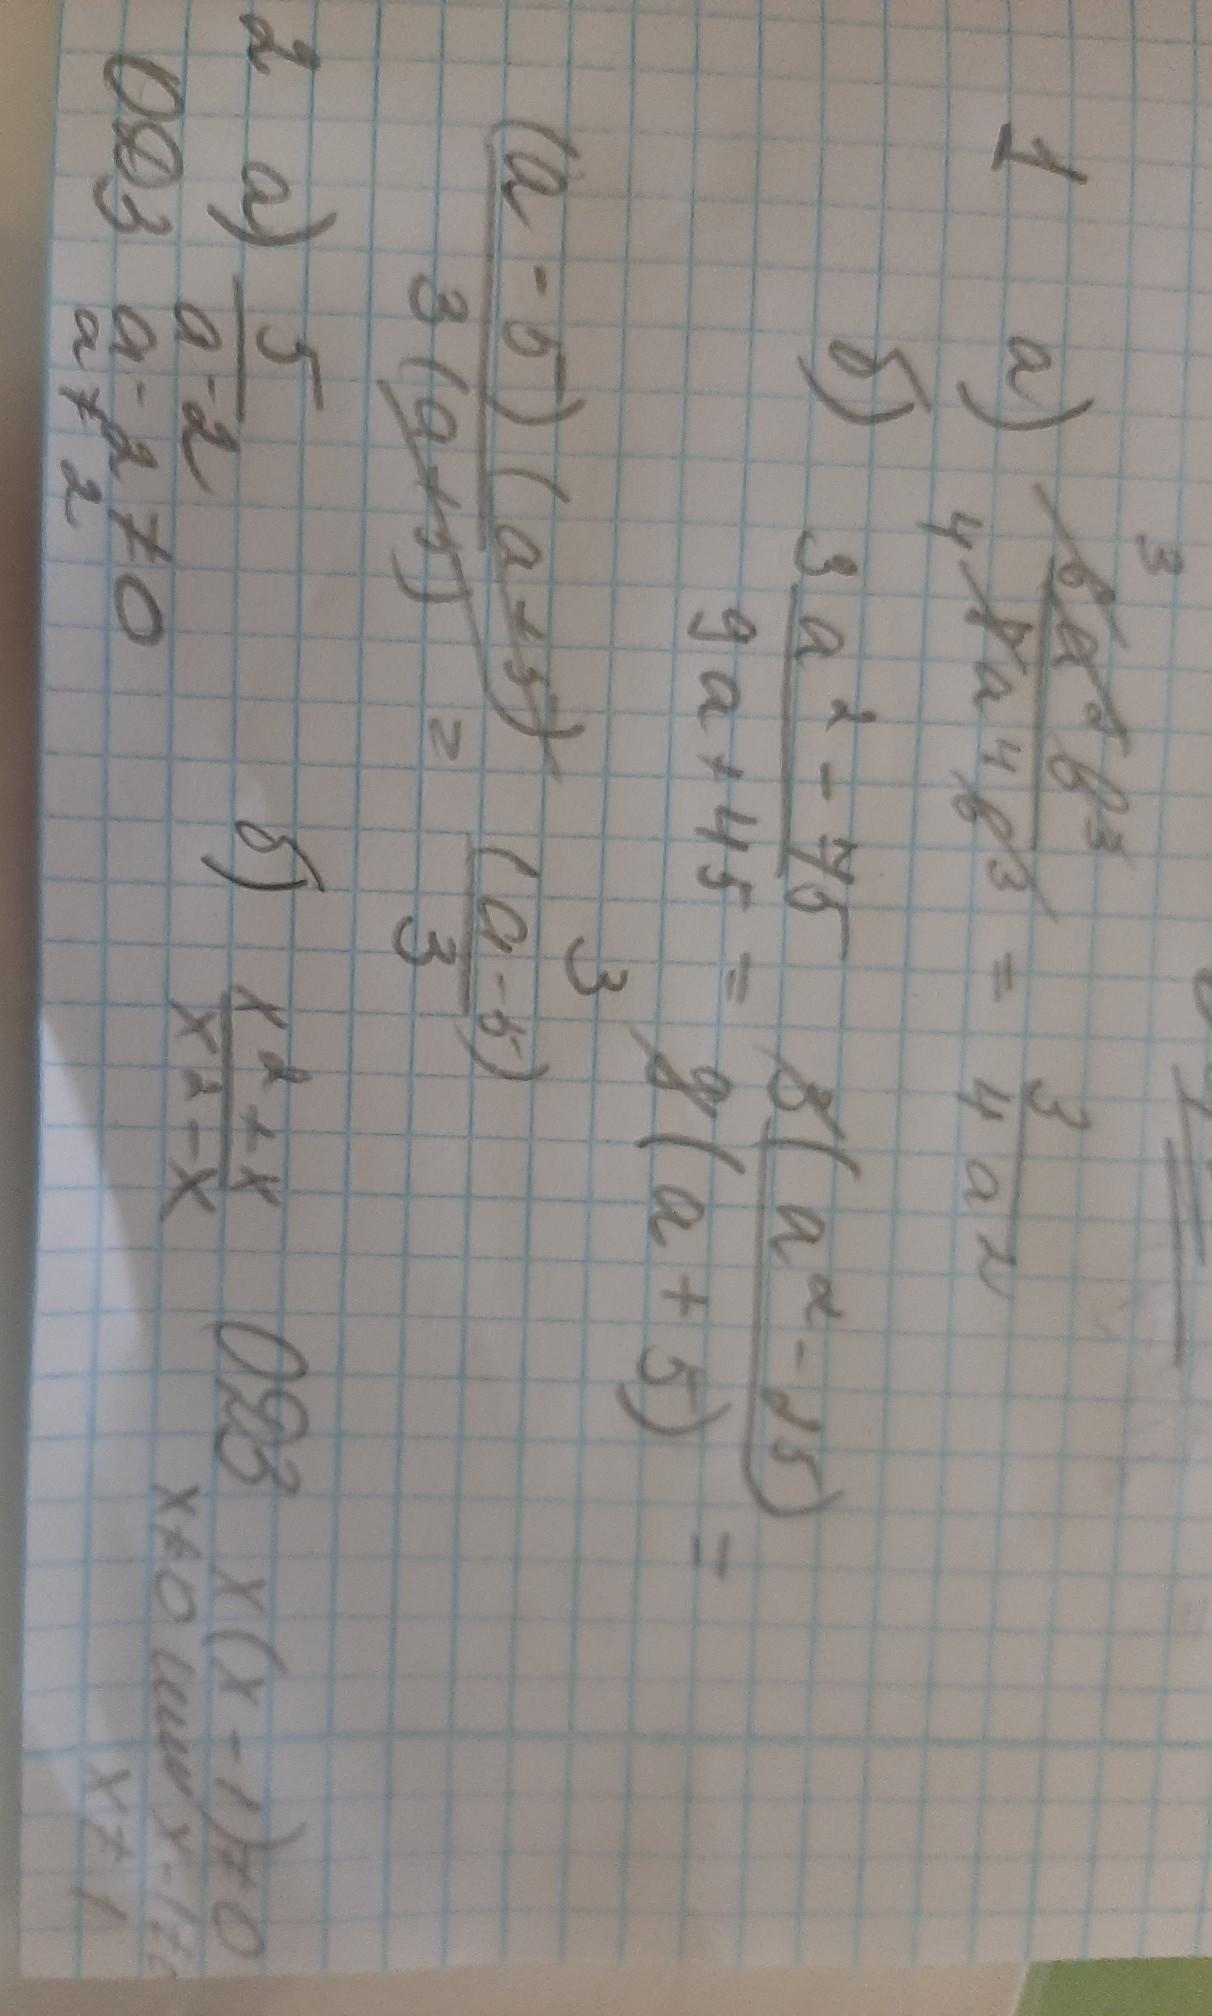 1 а) 6a²b³ / 8a⁴b³ = 3 / 4a²
б) 3a² - 75 / 9a + 45 = 3(a² - 25) / 9(a + 5) =
3
(a - 5)(a + 5) / 3(a + 5) = (a - 5) / 3
2 а) 5 / a - 2 б) x² + x / x² - x ОДЗ x(x - 1) ≠ 0
ОДЗ a - 2 ≠ 0 x ≠ 0 или x - 1 ≠ 0
a ≠ 2 x ≠ 1